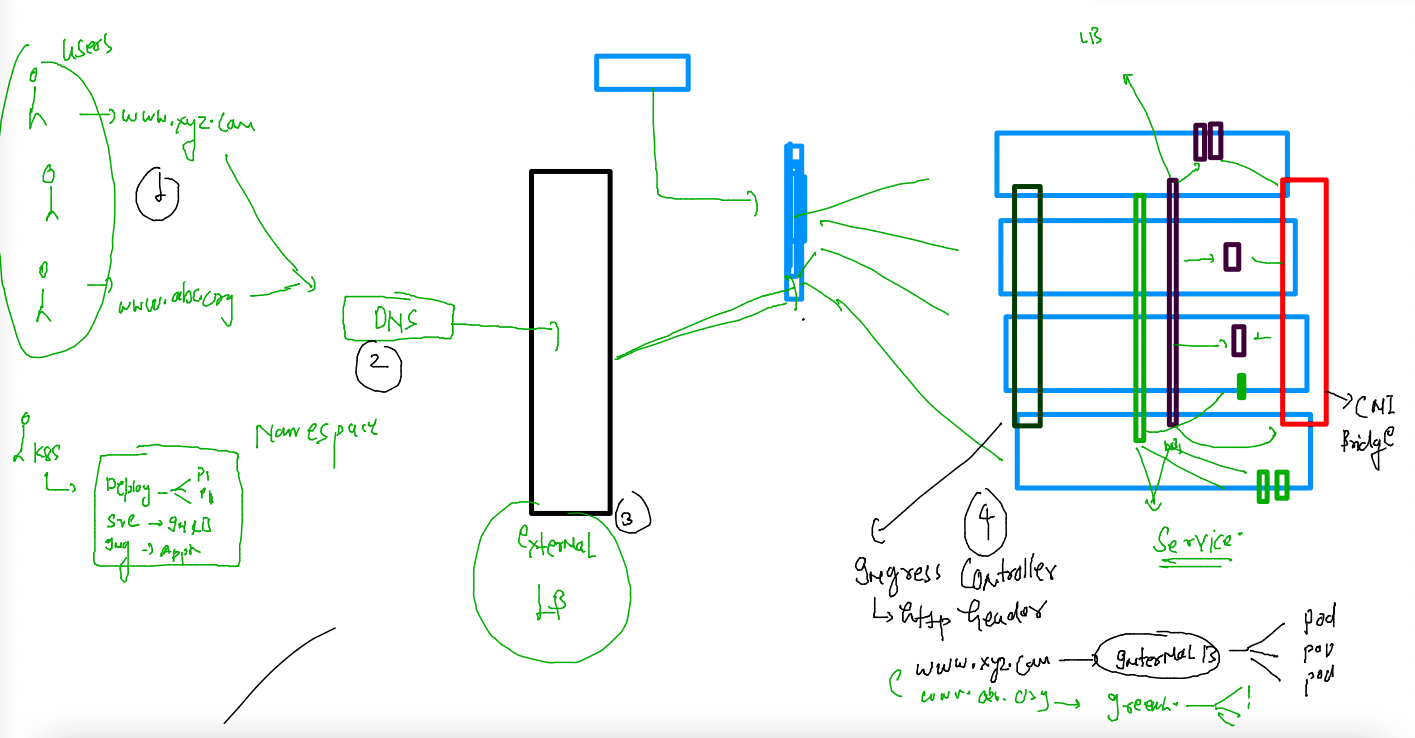 Users
www.xyz.com
1
www.abc.org
DNS
2
Namespace
K8S
Deploy
P1
P1
Svc → IntLB
Ing → App
3
External
LB
LB
CNI
Bridge
4
Service
Ingress Controller
http header
www.xyz.com
Internal B
pod
pod
pod
www.abc.org
green